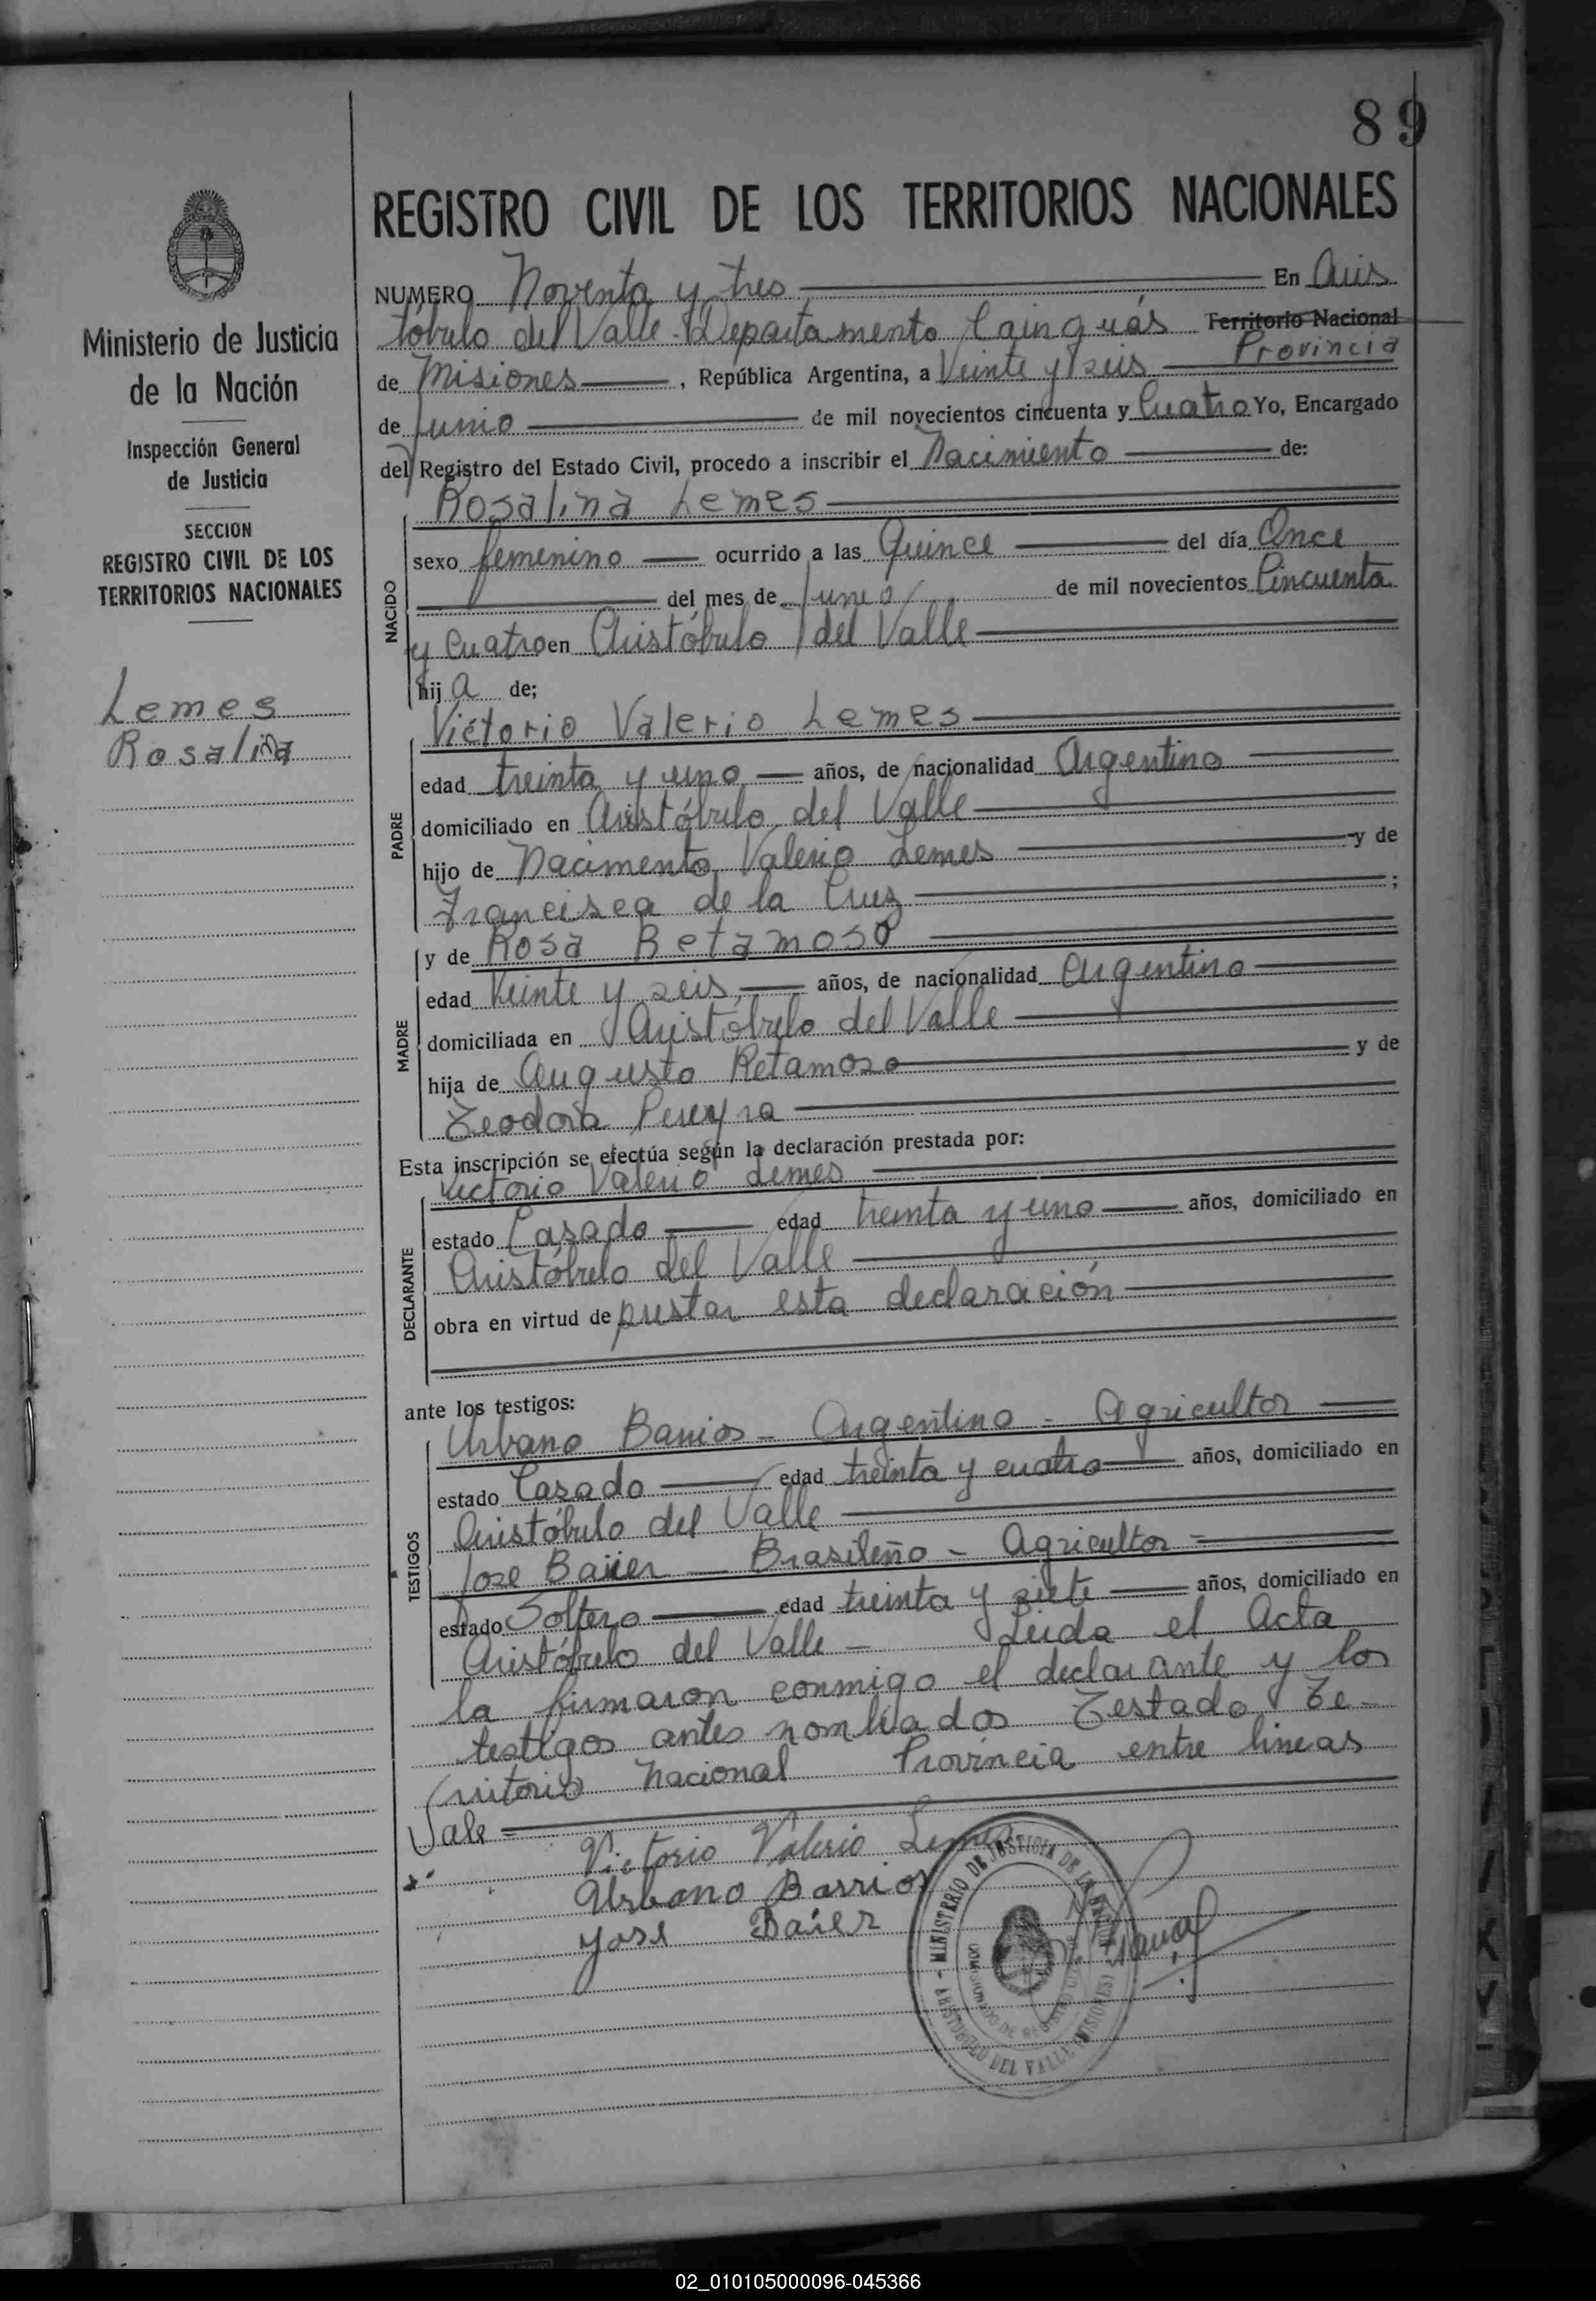 89
REGISTRO CIVIL DE LOS TERRITORIOS NACIONALES
Ministerio de Justicia
de la Nación
Inspección General
de Justicia
SECCION
REGISTRO CIVIL DE LOS
TERRITORIOS NACIONALES
Lemes
Rosalina
NUMERO Noventa y tres En Aris
tóbulo del Valle - Departamento Cainguás Territorio Nacional
Provincia
de Misiones, República Argentina, a Veinte y seis
de Junio de mil novecientos cincuenta y Cuatro Yo, Encargado
del Registro del Estado Civil, procedo a inscribir el Nacimiento de:
NACIDO
Rosalina Lemes
sexo femenino ocurrido a las Quince del día Once
del mes de Junio de mil novecientos Cincuenta
y Cuatro en Aristóbulo del Valle
hij a de;
PADRE
Victorio Valerio Lemes
edad treinta y uno años, de nacionalidad Argentino
domiciliado en Aristóbulo del Valle
hijo de Nacimento Valerio Lemes y de
Francisca de la Cruz ;
MADRE
y de Rosa Retamoso
edad Veinte y seis años, de nacionalidad Argentina
domiciliada en Aristóbulo del Valle
hija de Augusto Retamoso y de
Teodora Pereyra
Esta inscripción se efectúa según la declaración prestada por:
DECLARANTE
Victorio Valerio Lemes
estado Casado edad treinta y uno años, domiciliado en
Aristóbulo del Valle
obra en virtud de prestar esta declaración
ante los testigos:
TESTIGOS
Urbano Barrios - Argentino - Agricultor
estado Casado edad treinta y cuatro años, domiciliado en
Aristóbulo del Valle
Jose Baüer - Brasileño - Agricultor
estado Soltero edad treinta y siete años, domiciliado en
Aristóbulo del Valle - Leida el Acta
la firmaron conmigo el declarante y los
testigos antes nombrados Testado Te-
rritorio nacional Provincia entre lineas
Vale
Victorio Valerio Lemes
Urbano Barrios
José Baüer
MINISTERIO DE JUSTICIA DE LA NACION
ARISTOBULO DEL VALLE (MISIONES)
02_010105000096-045366